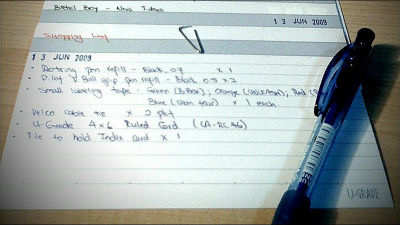 13 JUN 2009
Shopping List
13 JUN 2009
- Rotring pen refill - Black, 0.7 x 1
- Pilot Ball grip pen refill - Black 0.5 x 2
- Small labeling tape - Green Orange Red
Blue x 1 each
- Velco cable tie x 2 pkt
- U-Grade 4x6 Ruled Card (CA-RC46)
- File to hold Index card x 1
U-GRADE